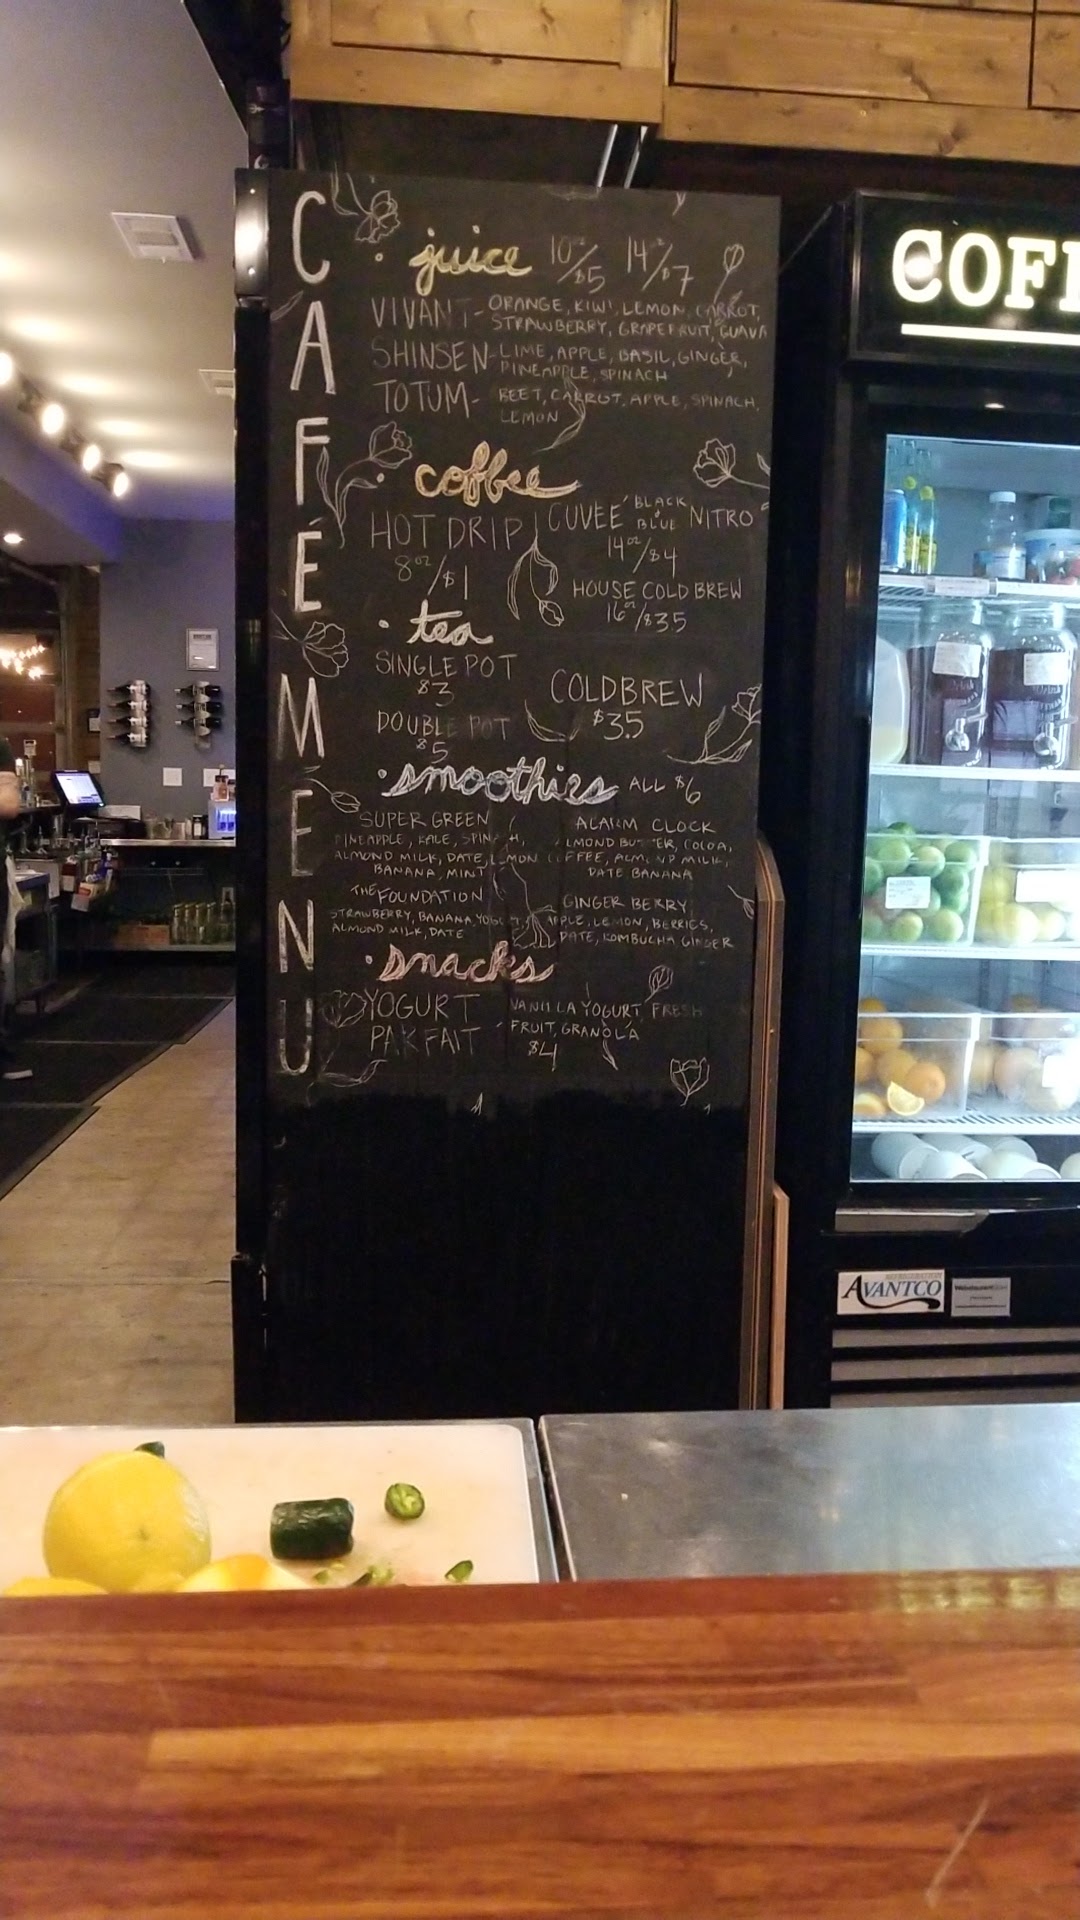 CAFÉ MENU
· juice 10oz/$5 14oz/$7
VIVANT - ORANGE, KIWI, LEMON, CARROT,
STRAWBERRY, GRAPEFRUIT, GUAVA
SHINSEN - LIME, APPLE, BASIL, GINGER,
PINEAPPLE, SPINACH
TOTUM - BEET, CARROT, APPLE, SPINACH,
LEMON
· coffee
HOT DRIP
8oz/$1
CUVEE BLACK & BLUE NITRO
14oz/$4
HOUSE COLD BREW
16oz/$35
· tea
SINGLE POT
$3
DOUBLE POT
$5
COLDBREW
$35
· smoothies ALL $6
SUPER GREEN
PINEAPPLE, KALE, SPINACH,
ALMOND MILK, DATE, LEMON
BANANA, MINT
ALARM CLOCK
ALMOND BUTTER, COCOA,
COFFEE, ALMOND MILK,
DATE BANANA
THE FOUNDATION
STRAWBERRY, BANANA, YOGURT,
ALMOND MILK, DATE
GINGER BERRY
APPLE, LEMON, BERRIES,
DATE, KOMBUCHA GINGER
· snacks
YOGURT
PARFAIT
VANILLA YOGURT, FRESH
FRUIT, GRANOLA
$4
COFF
REFRIGERATION
AVANTCO